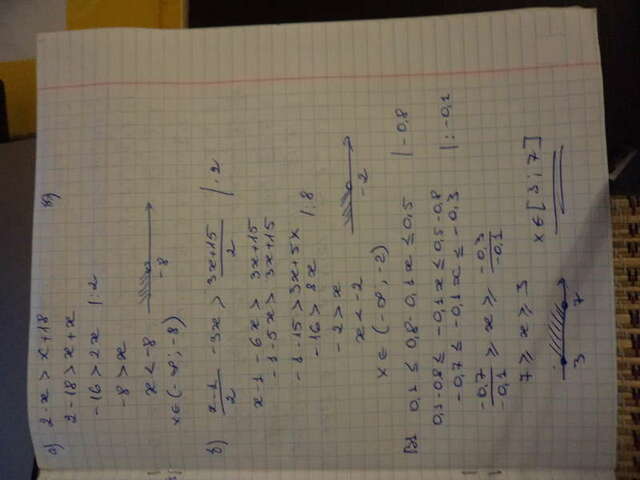 а) 2-x > x+18
2-18 > x+x
-16 > 2x |:2
-8 > x
x < -8
-8
x∈(-∞; -8)
в) x-1/2 -3x > 3x+15/2 |·2
x-1-6x > 3x+15
-1-5x > 3x+15
-1-15 > 3x+5x
-16 > 8x |:8
-2 > x
x < -2
-2
x∈(-∞; -2)
0,1 ≤ 0,8-0,1x ≤ 0,5 |-0,8
0,1-0,8 ≤ -0,1x ≤ 0,5-0,8
-0,7 ≤ -0,1x ≤ -0,3 |:-0,1
-0,7/-0,1 ≥ x ≥ -0,3/-0,1
7 ≥ x ≥ 3
3 7
x∈[3; 7]